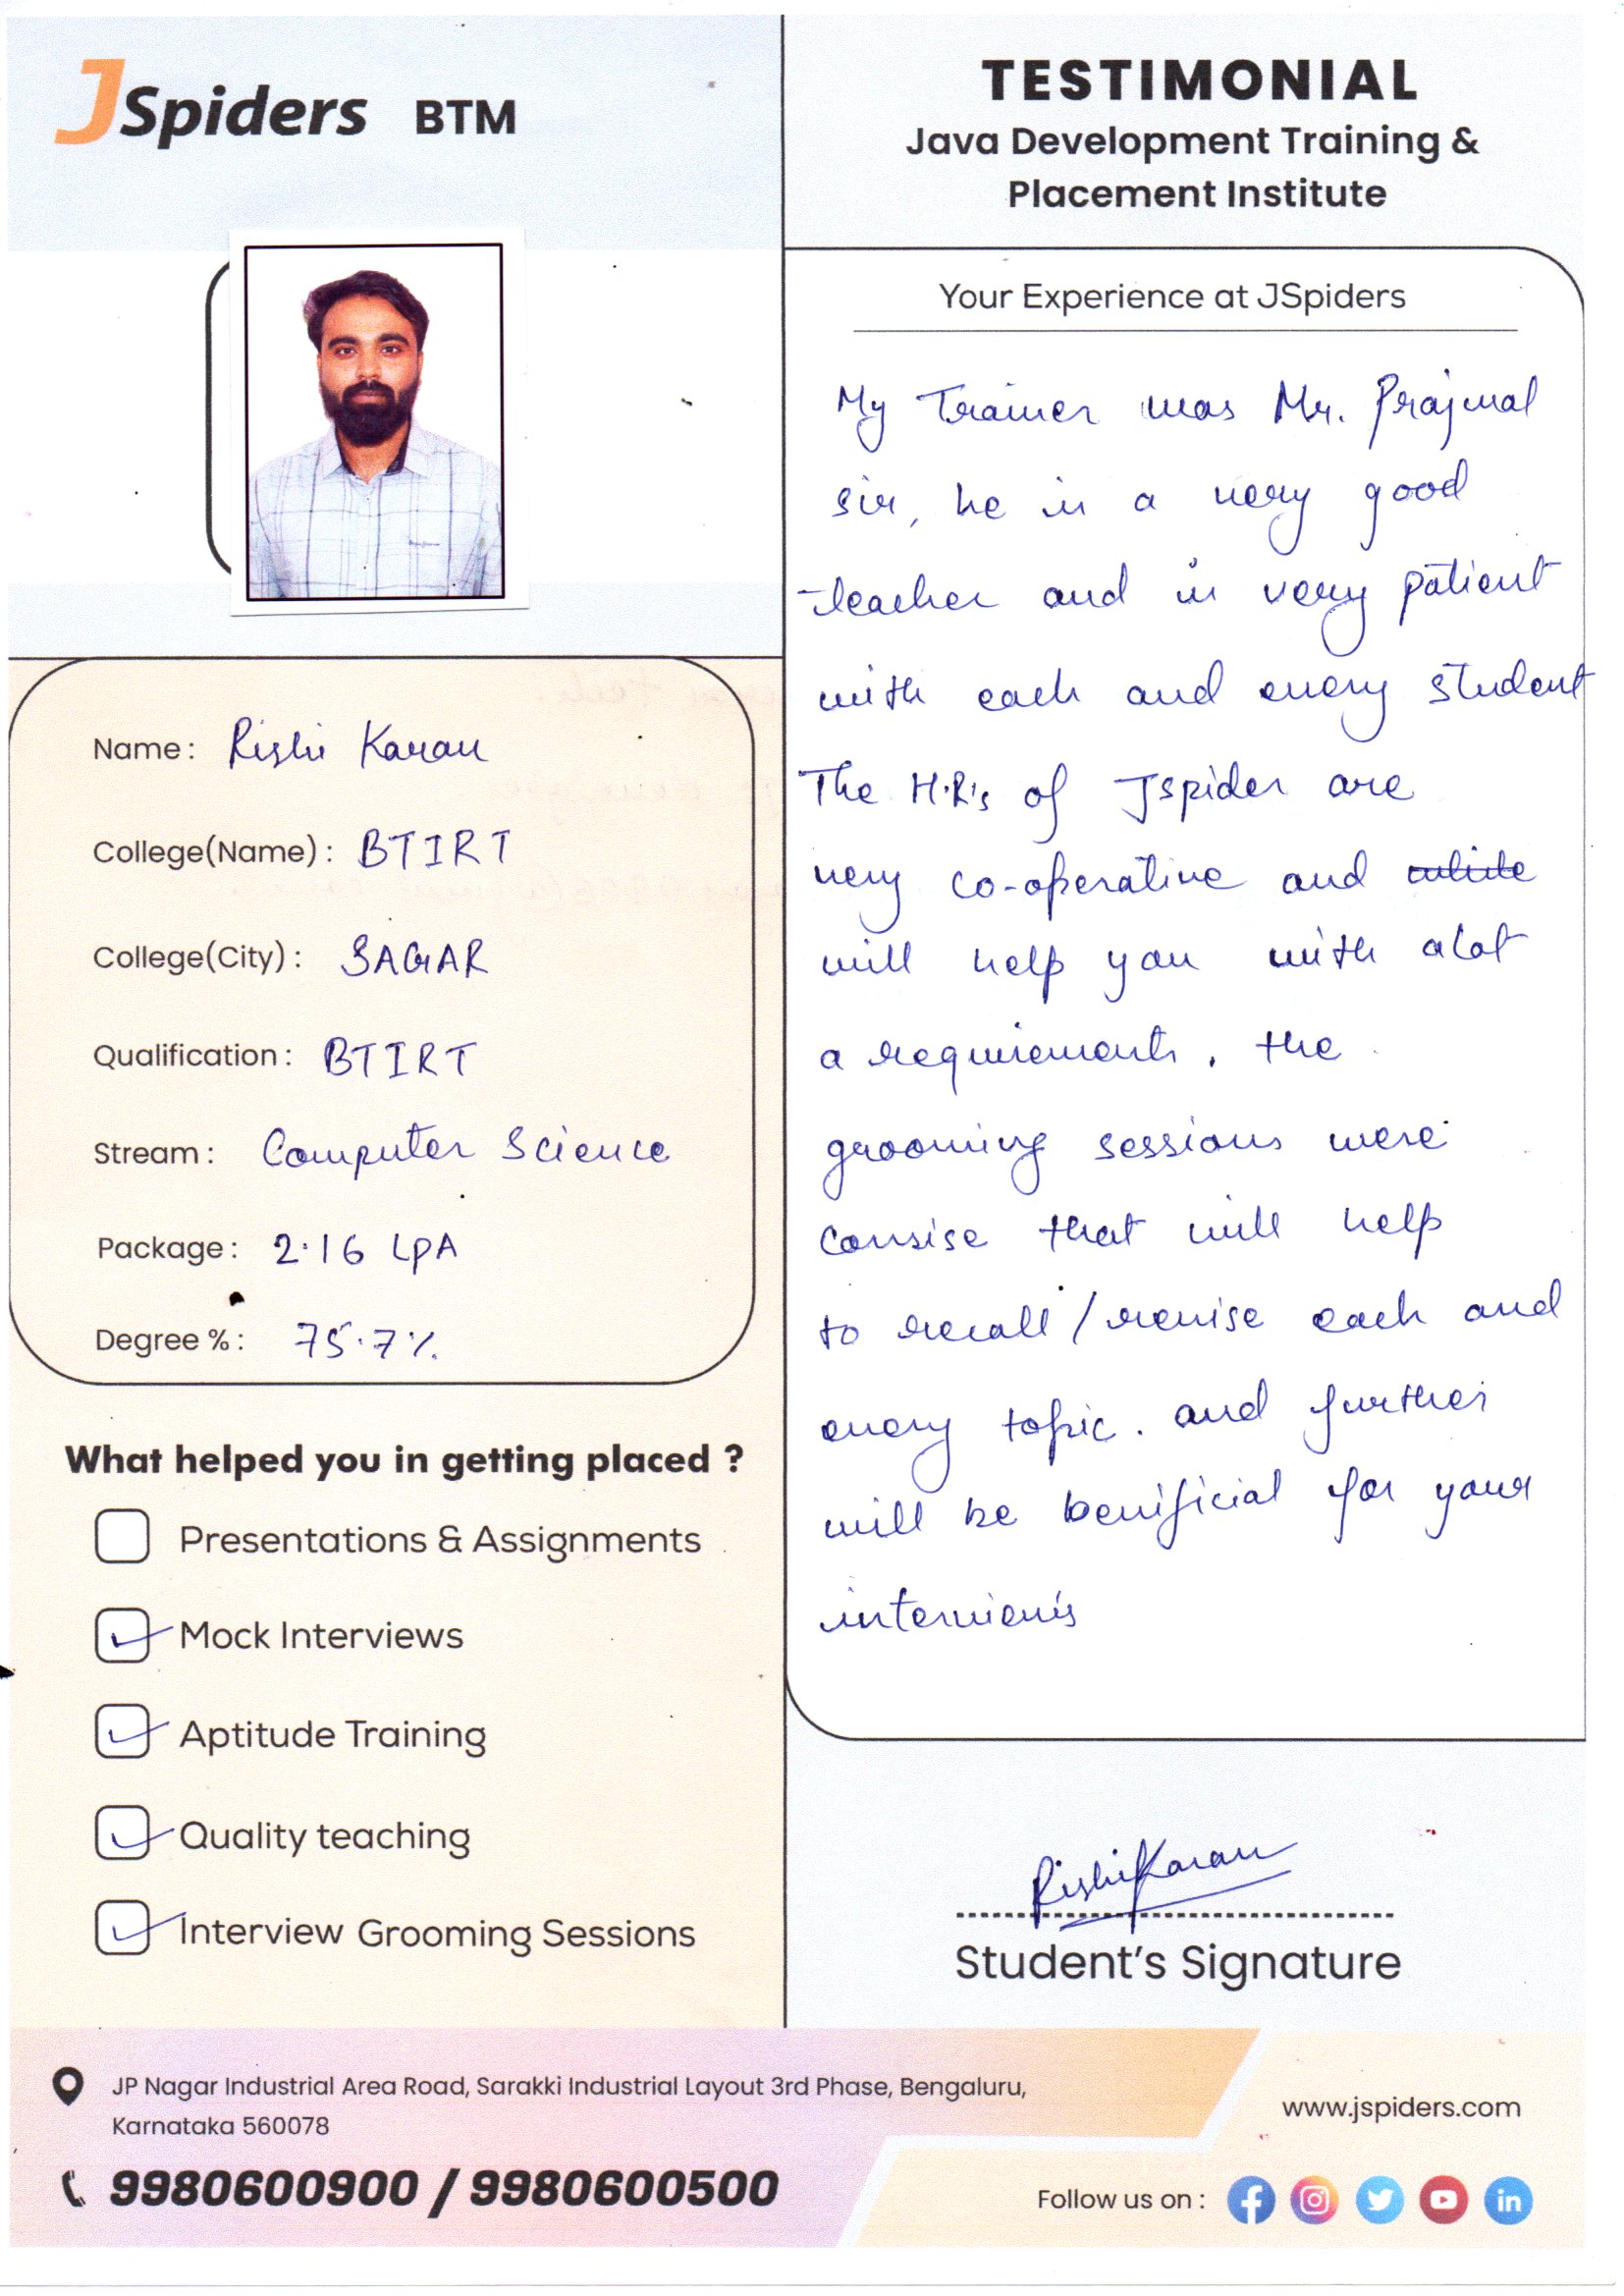 JSpiders BTM
TESTIMONIAL
Java Development Training &
Placement Institute
Name : Rishi Karan
College(Name) : BTIRT
College(City) : SAGAR
Qualification : BTIRT
Stream : Computer Science
Package : 2.16 LPA
Degree % : 75.7%
What helped you in getting placed ?
Presentations & Assignments
Mock Interviews
Aptitude Training
Quality teaching
Interview Grooming Sessions
Your Experience at JSpiders
My Trainer was Mr. Prajwal
sir, he is a very good
teacher and is very patient
with each and every student
The H.R's of Jspider are
very co-operative and
will help you with alot
a requirements. the
grooming sessions were
consise that will help
to recall / revise each and
every topic. and further
will be benificial for your
interviews
RishiKaran
Student's Signature
JP Nagar Industrial Area Road, Sarakki Industrial Layout 3rd Phase, Bengaluru,
Karnataka 560078
9980600900 / 9980600500
www.jspiders.com
Follow us on :